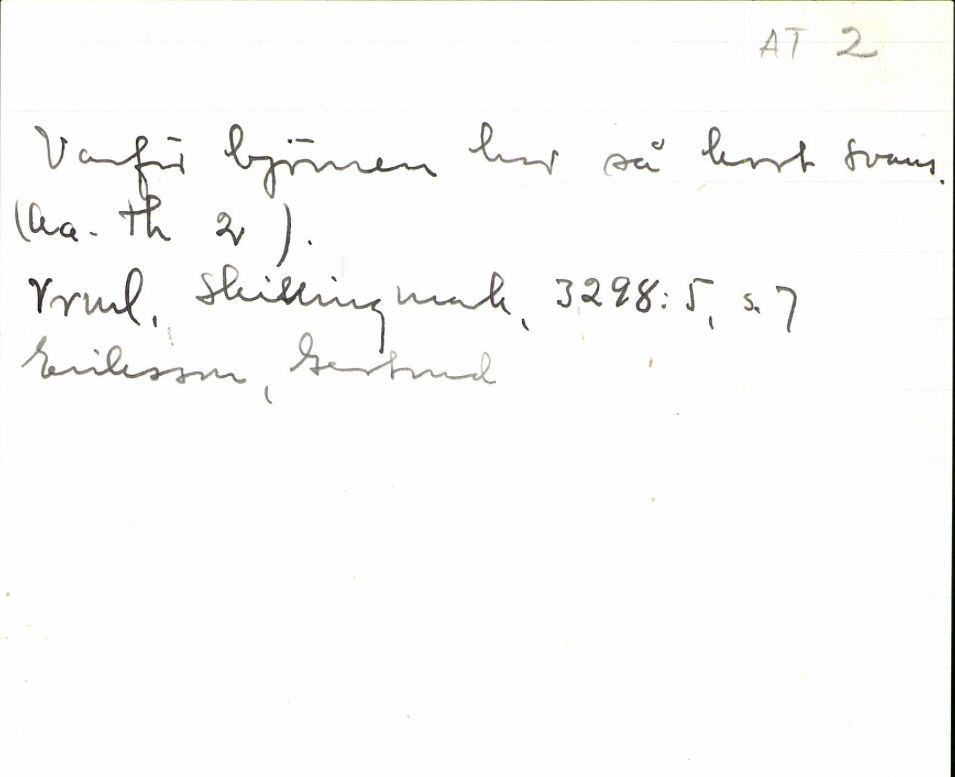 AT 2
Varför björnen har så kort svans.
(Aa-Th 2).
Vrml, Skillingmark, 3298:5, s. 7
Eriksson, Gertrud